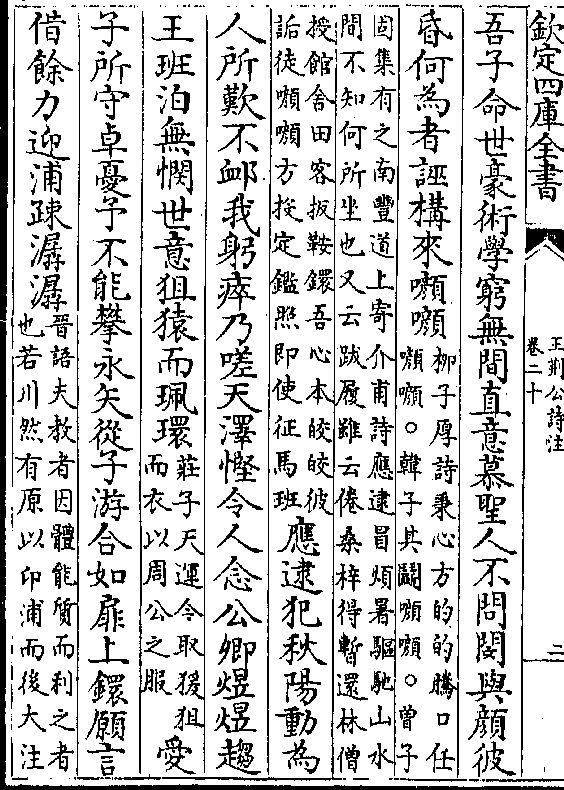 欽定四庫全書
王荆公詩注
卷二十
二
吾子命世豪術學窮無間直意慕聖人不問閔與顔彼
昏何為者誣構來嚬嚬
栁子厚詩秉心方的的騰口任
嚬嚬○韓子其鬭嚬嚬○曾子
固集有之南豐道上寄介甫詩應逮冒煩暑驅馳山水
間不知何所坐也又云跋履雖云倦桑梓得暫還林僧
授館舍田客扳鞍鐶吾心本皎皎彼
詬徒嚬嚬方投定鑑照即使征馬班
應逮犯秋陽動為
人所歎不䘏我躬瘁乃嗟天澤慳令人念公卿煜煜趨
王班泊無憫世意狙猿而珮環
莊子天運今取猨狙
而衣以周公之服
愛
子所守卓憂予不能攀永矢從子游合如扉上鐶願言
借餘力迎浦疎潺潺
晉語夫教者因體能質而利之者
也若川然有原以卬浦而後大注